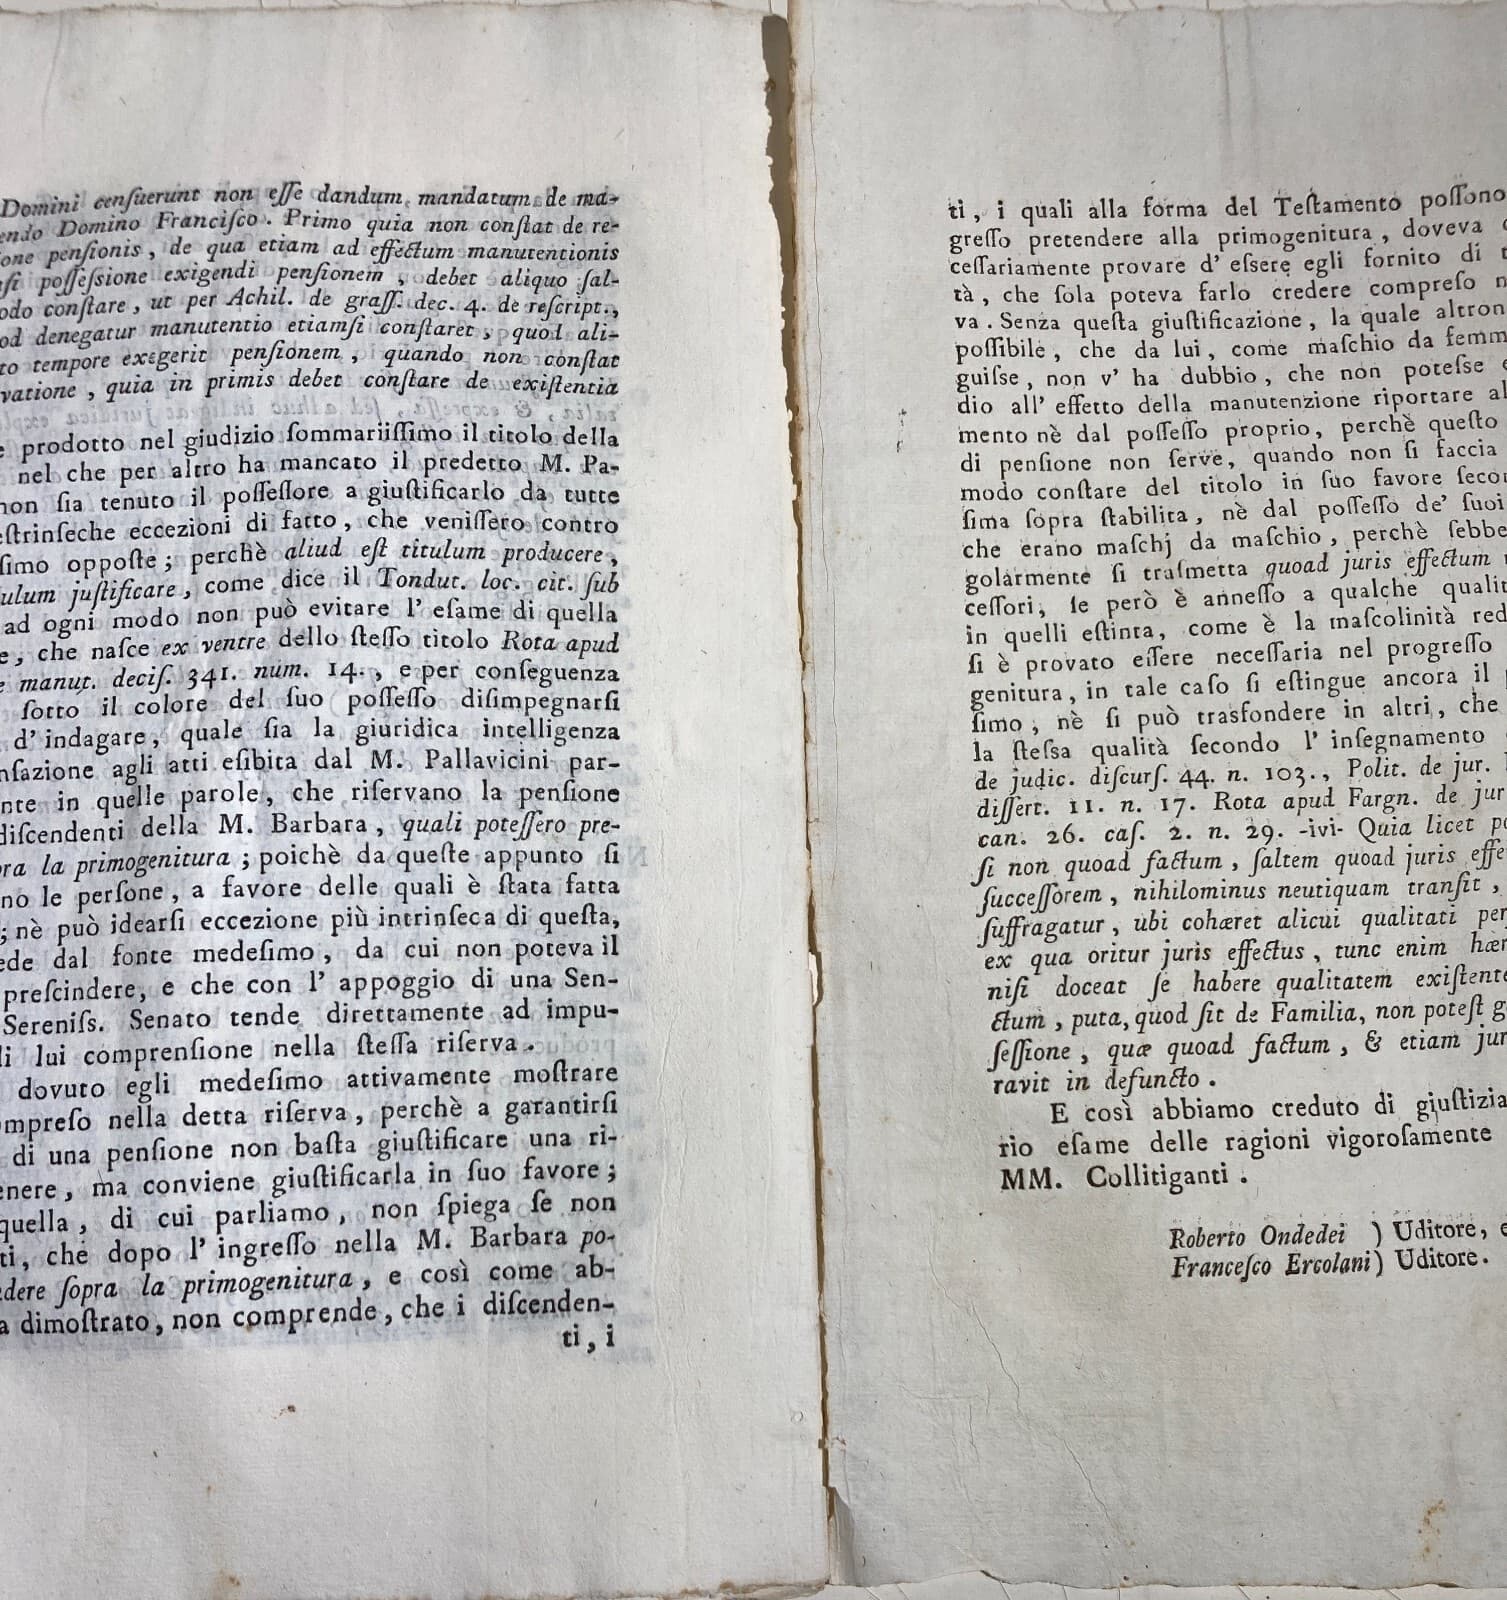 Domini cenſuerunt non eſſe dandum mandatum de ma-
endo Domino Franciſco. Primo quia non conſtat de re-
one penſionis, de qua etiam ad effectum manutentionis
ſi poſſeſſione exigendi penſionem, debet aliquo ſal-
odo conſtare, ut per Achil. de graſſ. dec. 4. de reſcript.,
od denegatur manutentio etiamſi conſtaret, quod ali-
to tempore exegerit penſionem, quando non conſtat
vatione, quia in primis debet conſtare de exiſtentia
e prodotto nel giudizio ſommariiſſimo il titolo della
nel che per altro ha mancato il predetto M. Pa-
non ſia tenuto il poſſeſſore a giuſtificarlo da tutte
eſtrinſeche eccezioni di fatto, che veniſſero contro
ſimo oppoſte; perchè aliud eſt titulum producere,
ulum juſtificare, come dice il Tondut. loc. cit. ſub
ad ogni modo non può evitare l' eſame di quella
e, che naſce ex ventre dello ſteſſo titolo Rota apud
e manut. deciſ. 341. num. 14., e per conſeguenza
ſotto il colore del ſuo poſſeſſo diſimpegnarſi
d' indagare, quale ſia la giuridica intelligenza
nſazione agli atti eſibita dal M. Pallavicini par-
nte in quelle parole, che riſervano la penſione
diſcendenti della M. Barbara, quali poteſſero pre-
ora la primogenitura; poichè da queſte appunto ſi
no le perſone, a favore delle quali è ſtata fatta
; nè può idearſi eccezione più intrinſeca di queſta,
ede dal fonte medeſimo, da cui non poteva il
preſcindere, e che con l' appoggio di una Sen-
Sereniſs. Senato tende direttamente ad impu-
di lui comprenſione nella ſteſſa riſerva.
dovuto egli medeſimo attivamente moſtrare
ompreſo nella detta riſerva, perchè a garantirſi
di una penſione non baſta giuſtificare una ri-
enere, ma conviene giuſtificarla in ſuo favore;
quella, di cui parliamo, non ſpiega ſe non
ti, che dopo l' ingreſſo nella M. Barbara po-
dere ſopra la primogenitura, e così come ab-
a dimoſtrato, non comprende, che i diſcenden-
ti, i
ti, i quali alla forma del Teſtamento poſſono
greſſo pretendere alla primogenitura, doveva
ceſſariamente provare d' eſsere egli fornito di
tà, che ſola poteva farlo credere compreſo
va. Senza queſta giuſtificazione, la quale altron
poſſibile, che da lui, come maſchio da femm
guiſse, non v' ha dubbio, che non poteſse
dio all' effetto della manutenzione riportare al
mento nè dal poſſeſſo proprio, perchè queſto
di penſione non ſerve, quando non ſi faccia
modo conſtare del titolo in ſuo favore ſecon
ſima ſopra ſtabilita, nè dal poſſeſſo de' ſuoi
che erano maſchj da maſchio, perchè ſebbe
golarmente ſi traſmetta quoad juris effectum
ceſſori, ſe però è anneſſo a qualche qualit
in quelli eſtinta, come è la maſcolinità red
ſi è provato eſſere neceſſaria nel progreſſo
genitura, in tale caſo ſi eſtingue ancora il
ſimo, nè ſi può trasfondere in altri, che
la ſteſsa qualità ſecondo l' inſegnamento
de judic. diſcurſ. 44. n. 103., Polit. de jur.
diſſert. 11. n. 17. Rota apud Fargn. de jur
can. 26. caſ. 2. n. 29. -ivi- Quia licet po
ſi non quoad factum, ſaltem quoad juris effe
ſucceſſorem, nihilominus neutiquam tranſit,
ſuffragatur, ubi cohæret alicui qualitati per
ex qua oritur juris effectus, tunc enim hær
niſi doceat ſe habere qualitatem exiſtente
ctum, puta, quod ſit de Familia, non poteſt g
ſeſſione, quæ quoad factum, & etiam jur
ravit in defuncto.
E così abbiamo creduto di giuſtizia
rio eſame delle ragioni vigoroſamente
MM. Collitiganti.
Roberto Ondedei ) Uditore, e
Franceſco Ercolani) Uditore.